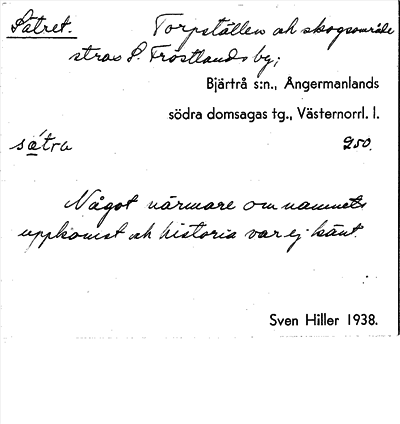 Sätret. Torpställen och skogsområde
strax S. Fröstlands by;
Bjärtrå s:n., Ångermanlands
södra domsagas tg., Västernorrl. l.
sátra 250.
Något närmare om namnets
uppkomst och historia var ej känt.
Sven Hiller 1938.